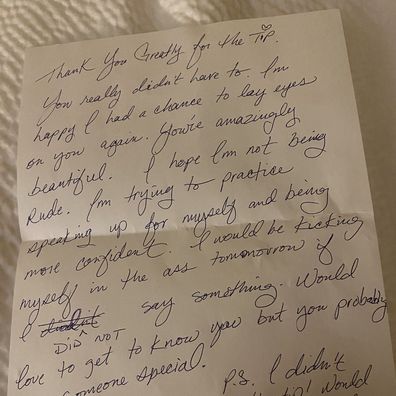 Thank You Greatly for the Tip.
You really didn't have to. I'm
happy I had a chance to lay eyes
on you again. You're amazingly
beautiful. I hope I'm not being
Rude. I'm trying to practice
speaking up for myself and being
more confident. I would be kicking
myself in the ass tomorrow if
I DID NOT say something. Would
love to get to know you but you probably
someone special.
P.S. I didn't
would